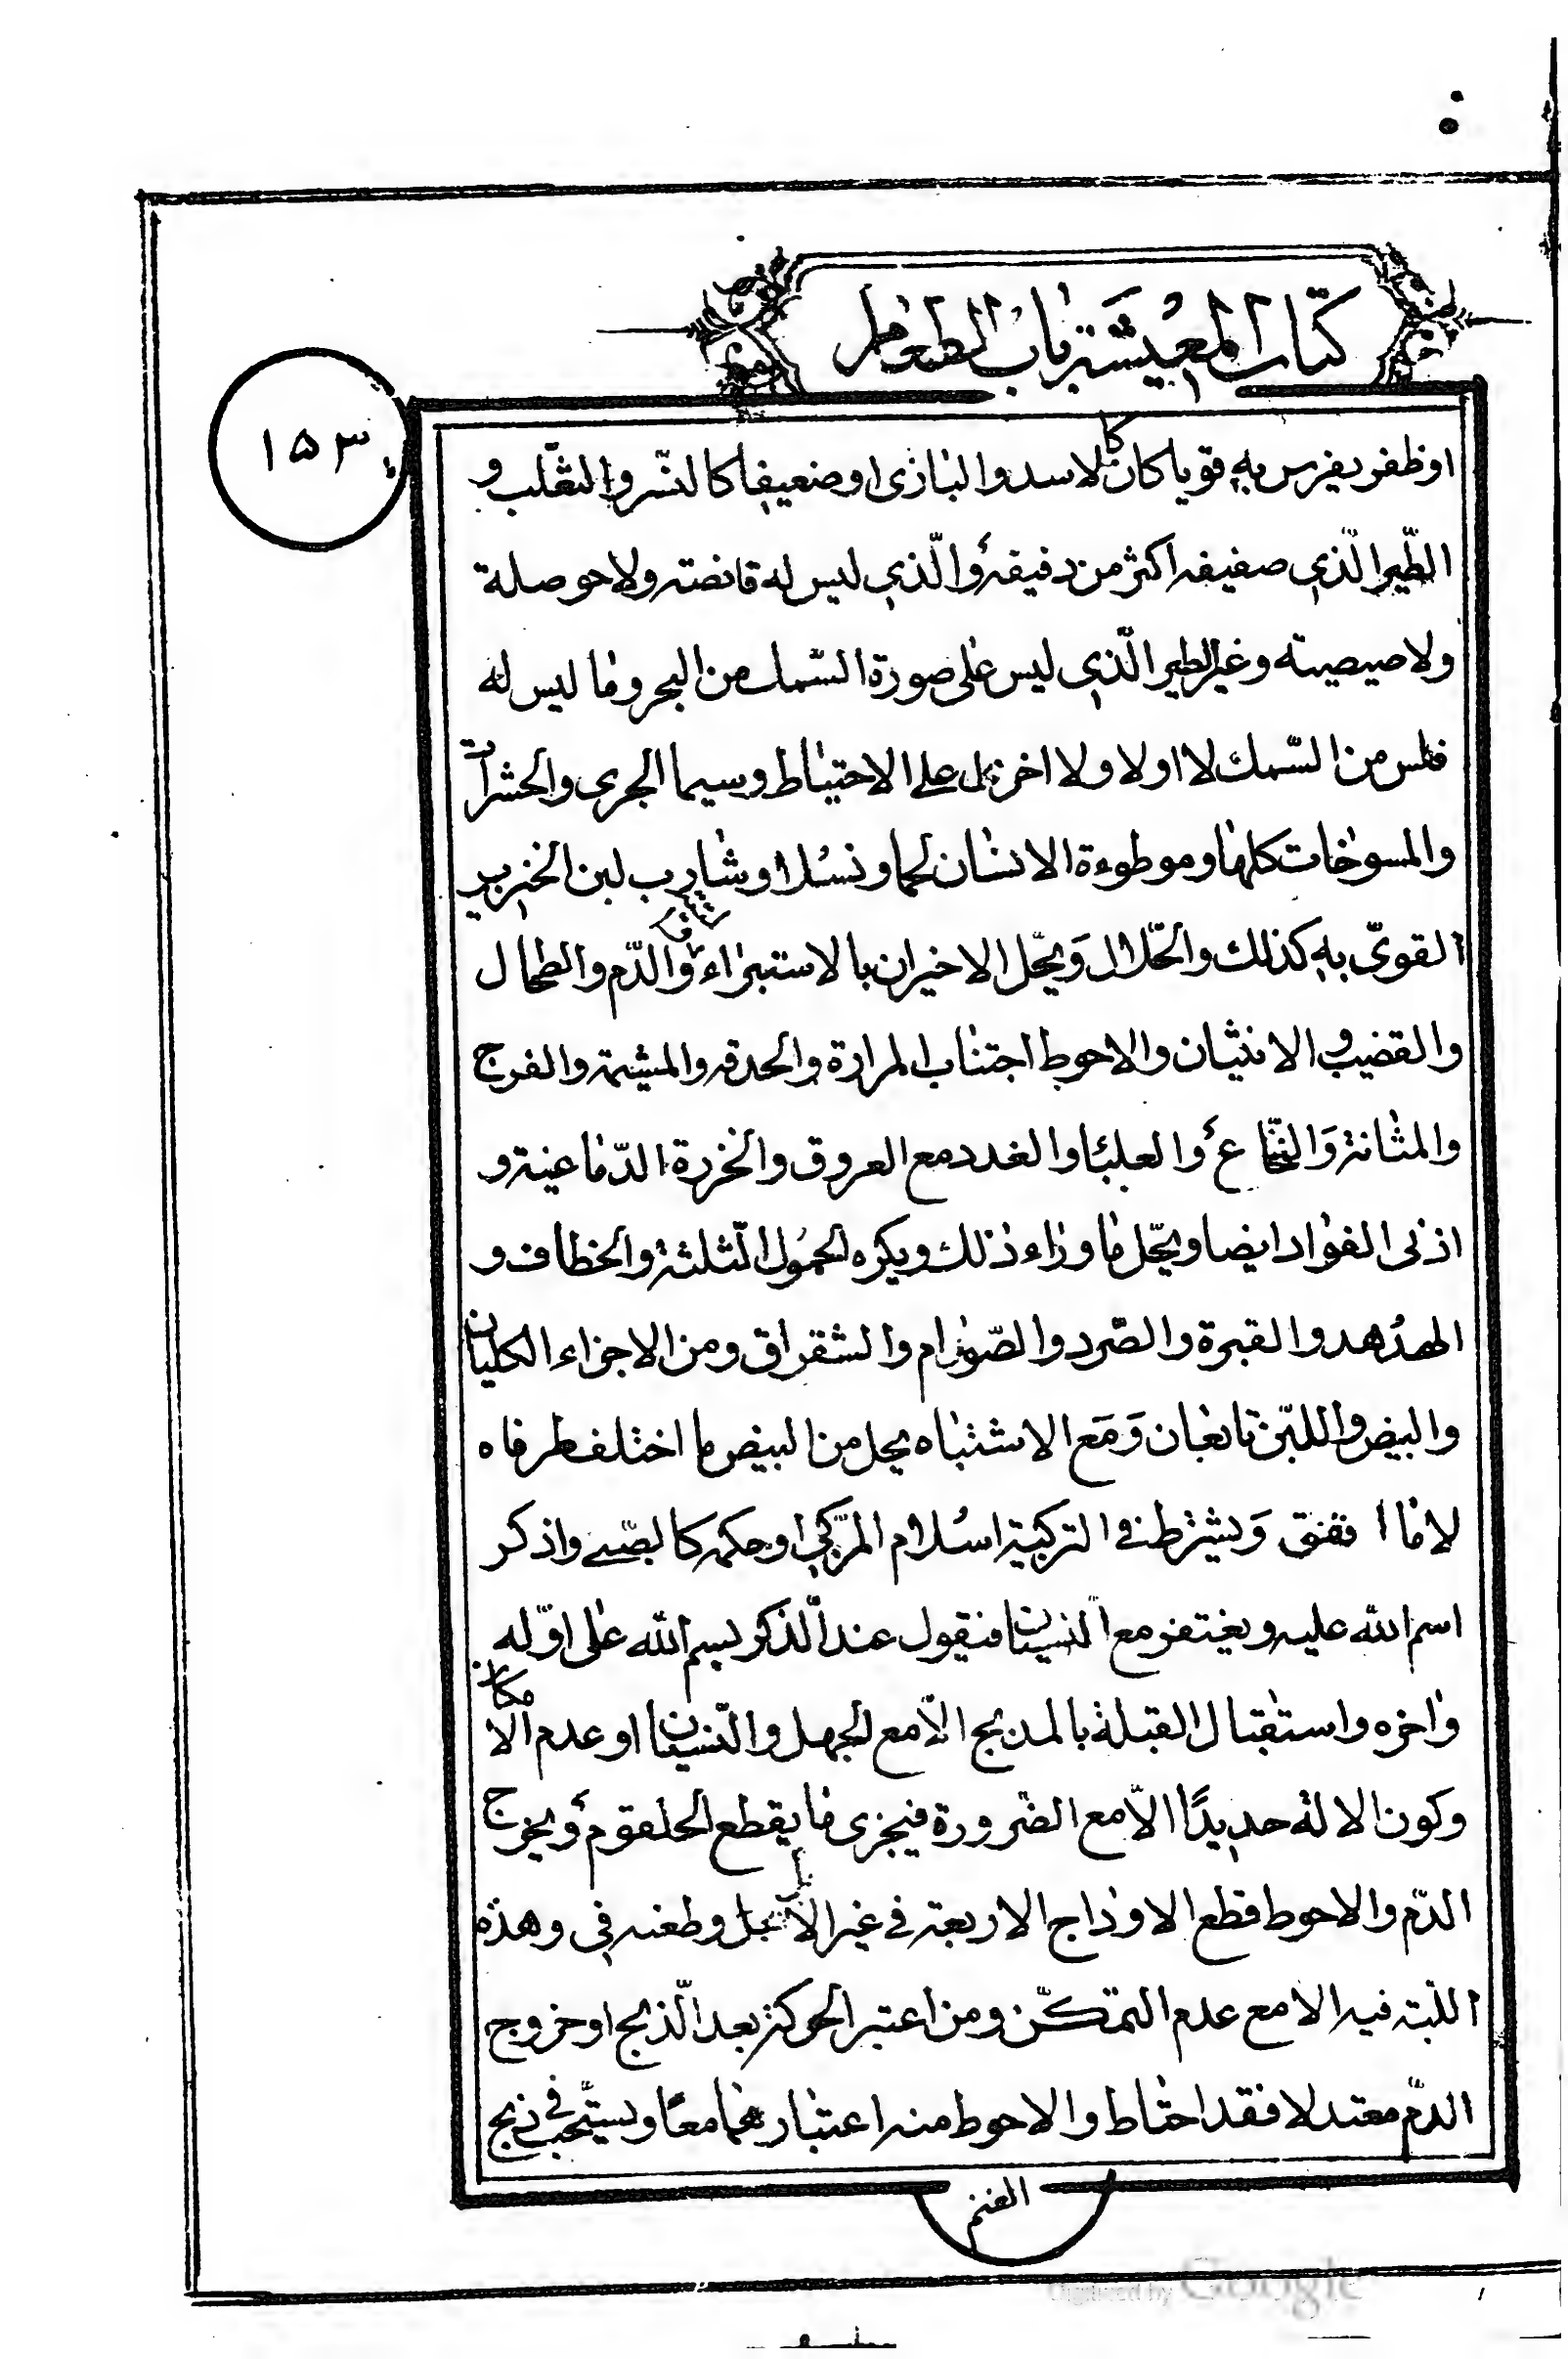 كتاب المعيشة باب الطعام
١٥٣
او ظفر يفرس به قويا كان كالاسد والبازى او ضعيفا كالنسر والثعلب و
الطّير الّذي صفيفه اكثر من دفيفه والّذي ليس له قانصته ولا حوصلة
ولا صيصيته وغير الطير الّذي ليس على صورة السّمك من البحر وما ليس له
فلس من السّمك لا اولا ولا اخرا على الاحتياط وسيما الجرى والحشرات
والمسوخات كلها وموطوءة الانسان لحما ونسلا وشارب لبن الخنزير
القويّ به كذلك والجّلال ويحّل الاخيران بالاستبراء والدّم والطحال
والقضيب و الانثيان والاحوط اجتناب المرارة والحدقه والمشيمة والفرج
والمثانة والنّخاع والعلبا والغدد مع العروق والخرزة الدّماغية و
اذنى الفؤاد ايضا ويحّل ما وراء ذلك ويكره الحمول الثلثة والخطاف و
الهدهد والقبرة والصّرد والصّوام والشقراق ومن الاجزاء الكليان
والبيض واللبن تابعان ومع الاشتباه يحل من البيض ما اختلف طرفاه
لا ما اتفق ويشترط في التزكية اسلام المزّكي او حكمه كالصّبي واذكر
اسم الله عليه ويغتفر مع النسيان فيقول عند الذكر بسم الله على اوّله
واخره واستقبال القبلة بالمذبح الاّ مع الجهل والنّسيان او عدم الامكان
وكون الالة حديدًا الاّ مع الضّرورة فيجزى ما يقطع الحلقوم ويخرج
الدّم والاحوط قطع الاوداج الاربعة في غير الابل وطعنه في وهذه
اللّبته فيه الا مع عدم التمكّن ومن اعتبر الحركة بعد الّذبح او خروج
الدّم معتدلا فقد احتاط والاحوط منه اعتبارهما معًا ويستحّب في ذبح
الغنم
Digitized by Google